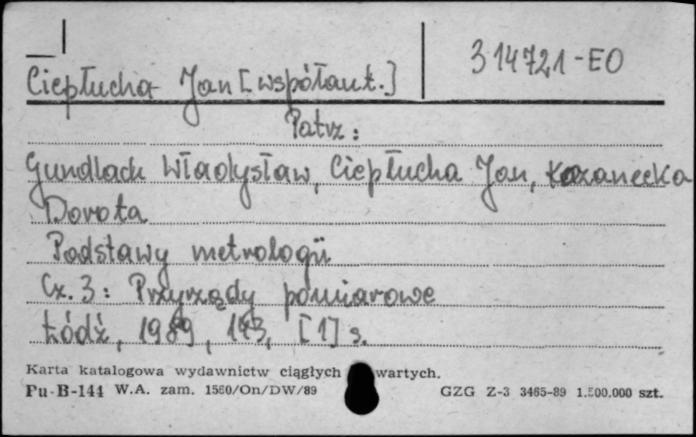 Ciepłucha Jan [współaut.]
314721-EO
Patrz:
Gundlach Władysław, Ciepłucha Jan, Kazanecka
Dorota
Podstawy metrologii
Cz. 3: Przyrządy pomiarowe
Łódź, 1989, 143, [1] s.
Karta katalogowa wydawnictw ciągłych wartych.
Pu-B-144 W.A. zam. 1560/On/DW/89 GZG Z-3 3465-89 1.500.000 szt.